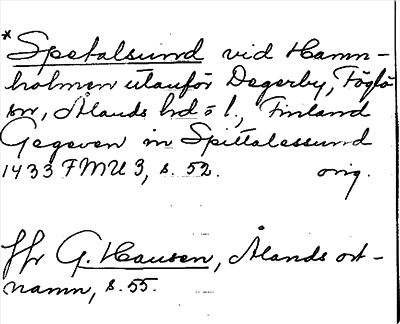 *Spetalsund vid Hamn-
holmen utanför Degerby, Föglö
sn, Ålands hd o l., Finland
Gegeven in Spittalessund
1433 FMU 3, s. 52. orig.
Jfr G. Hausen, Ålands ort-
namn, s. 55.